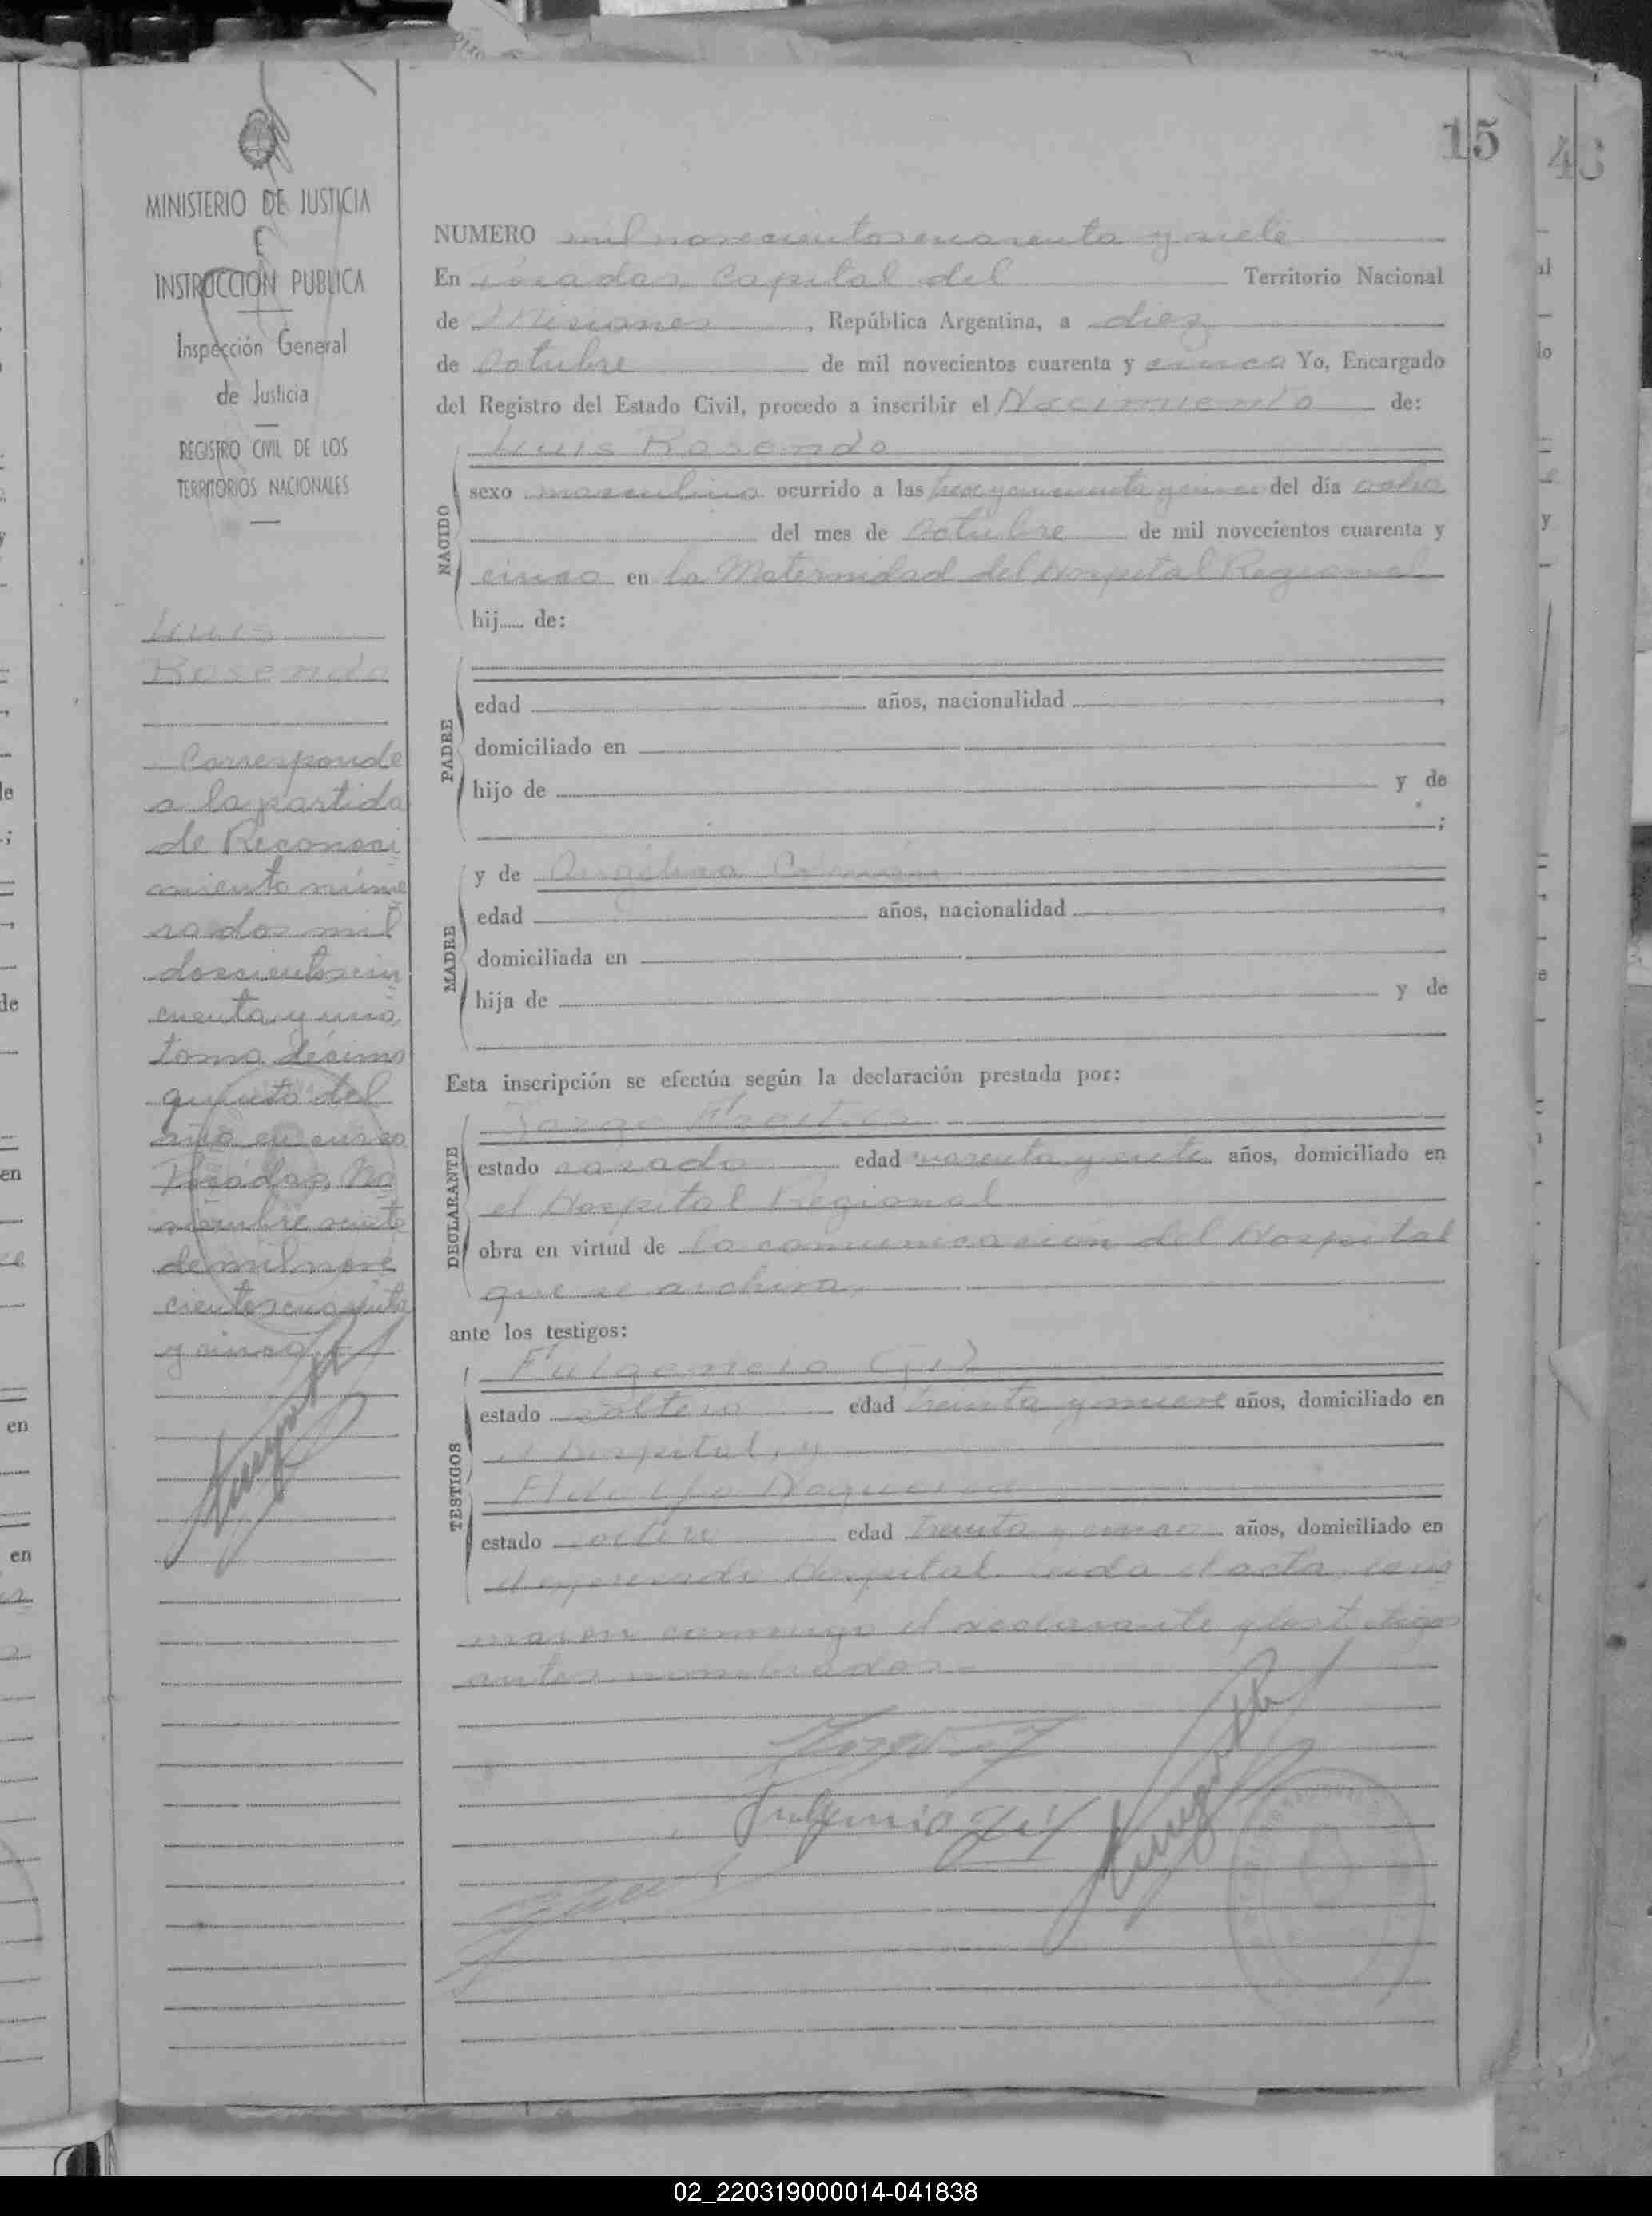 15
46
MINISTERIO DE JUSTICIA
E
INSTRUCCION PUBLICA
Inspección General
de Justicia
REGISTRO CIVIL DE LOS
TERRITORIOS NACIONALES
Luis
Rosendo
Corresponde
a la partida
de Reconoci
miento núme
ro dos mil
doscientos cin
cuenta y uno
tomo décimo
quinto del
año en curso
Posadas, No
viembre siete
de mil nove
cientos cuarenta
y cinco
NUMERO mil novecientos cuarenta y siete
En Posadas, Capital del Territorio Nacional
de Misiones, República Argentina, a diez
de Octubre de mil novecientos cuarenta y cinco Yo, Encargado
del Registro del Estado Civil, procedo a inscribir el Nacimiento de:
Luis Rosendo
NACIDO
sexo masculino ocurrido a las y cincuenta y cinco del día ocho
del mes de Octubre de mil novecientos cuarenta y
cinco en la Maternidad del Hospital Regional
hij de:
PADRE
edad años, nacionalidad
domiciliado en
hijo de y de
;
MADRE
y de Angélina
edad años, nacionalidad
domiciliada en
hija de y de
Esta inscripción se efectúa según la declaración prestada por:
DECLARANTE
Jorge
estado casado edad cuarenta y siete años, domiciliado en
el Hospital Regional
obra en virtud de la comunicación del Hospital
que se archiva,
ante los testigos:
TESTIGOS
Fulgencio Gil
estado soltero edad treinta y nueve años, domiciliado en
el Hospital, y
estado soltero edad treinta y cinco años, domiciliado en
el expresado Hospital. Leida el acta, la fir
maron conmigo el declarante y los testigos
antes nombrados.-
Fulgencio Gil
02_220319000014-041838